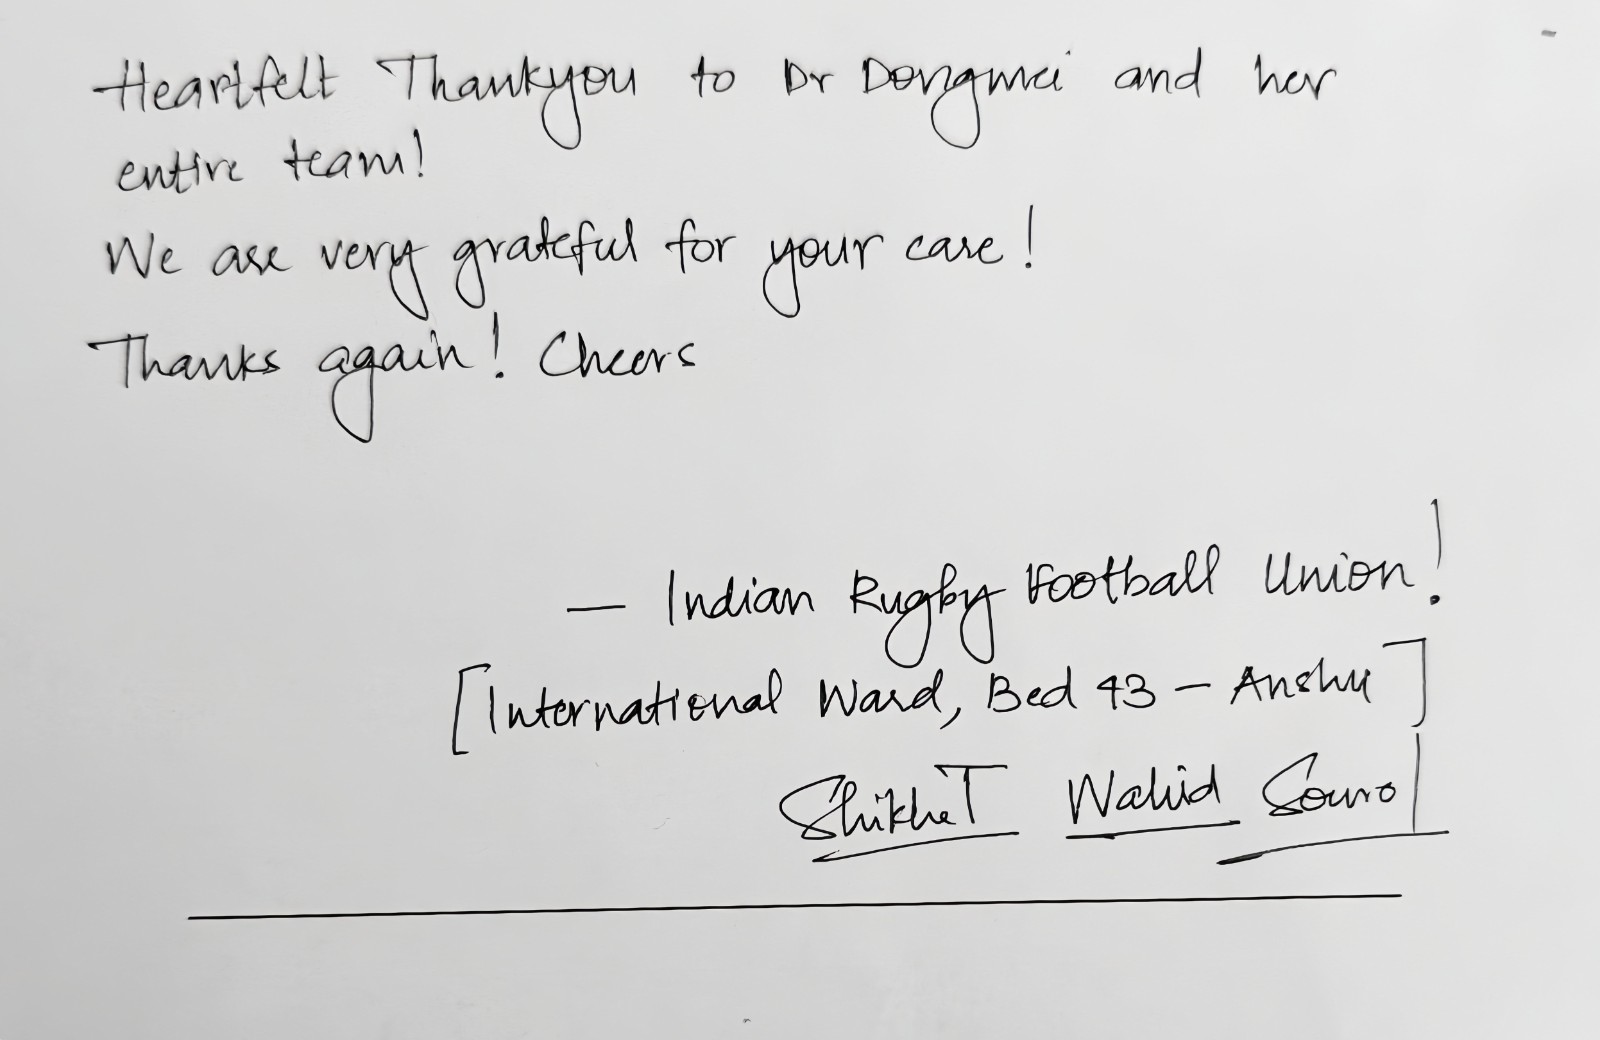 Heartfelt Thankyou to Dr Dongmei and her
entire team!
We are very grateful for your care!
Thanks again! Cheers
— Indian Rugby Football Union!
[International Ward, Bed 43 – Anshu]
Wahid